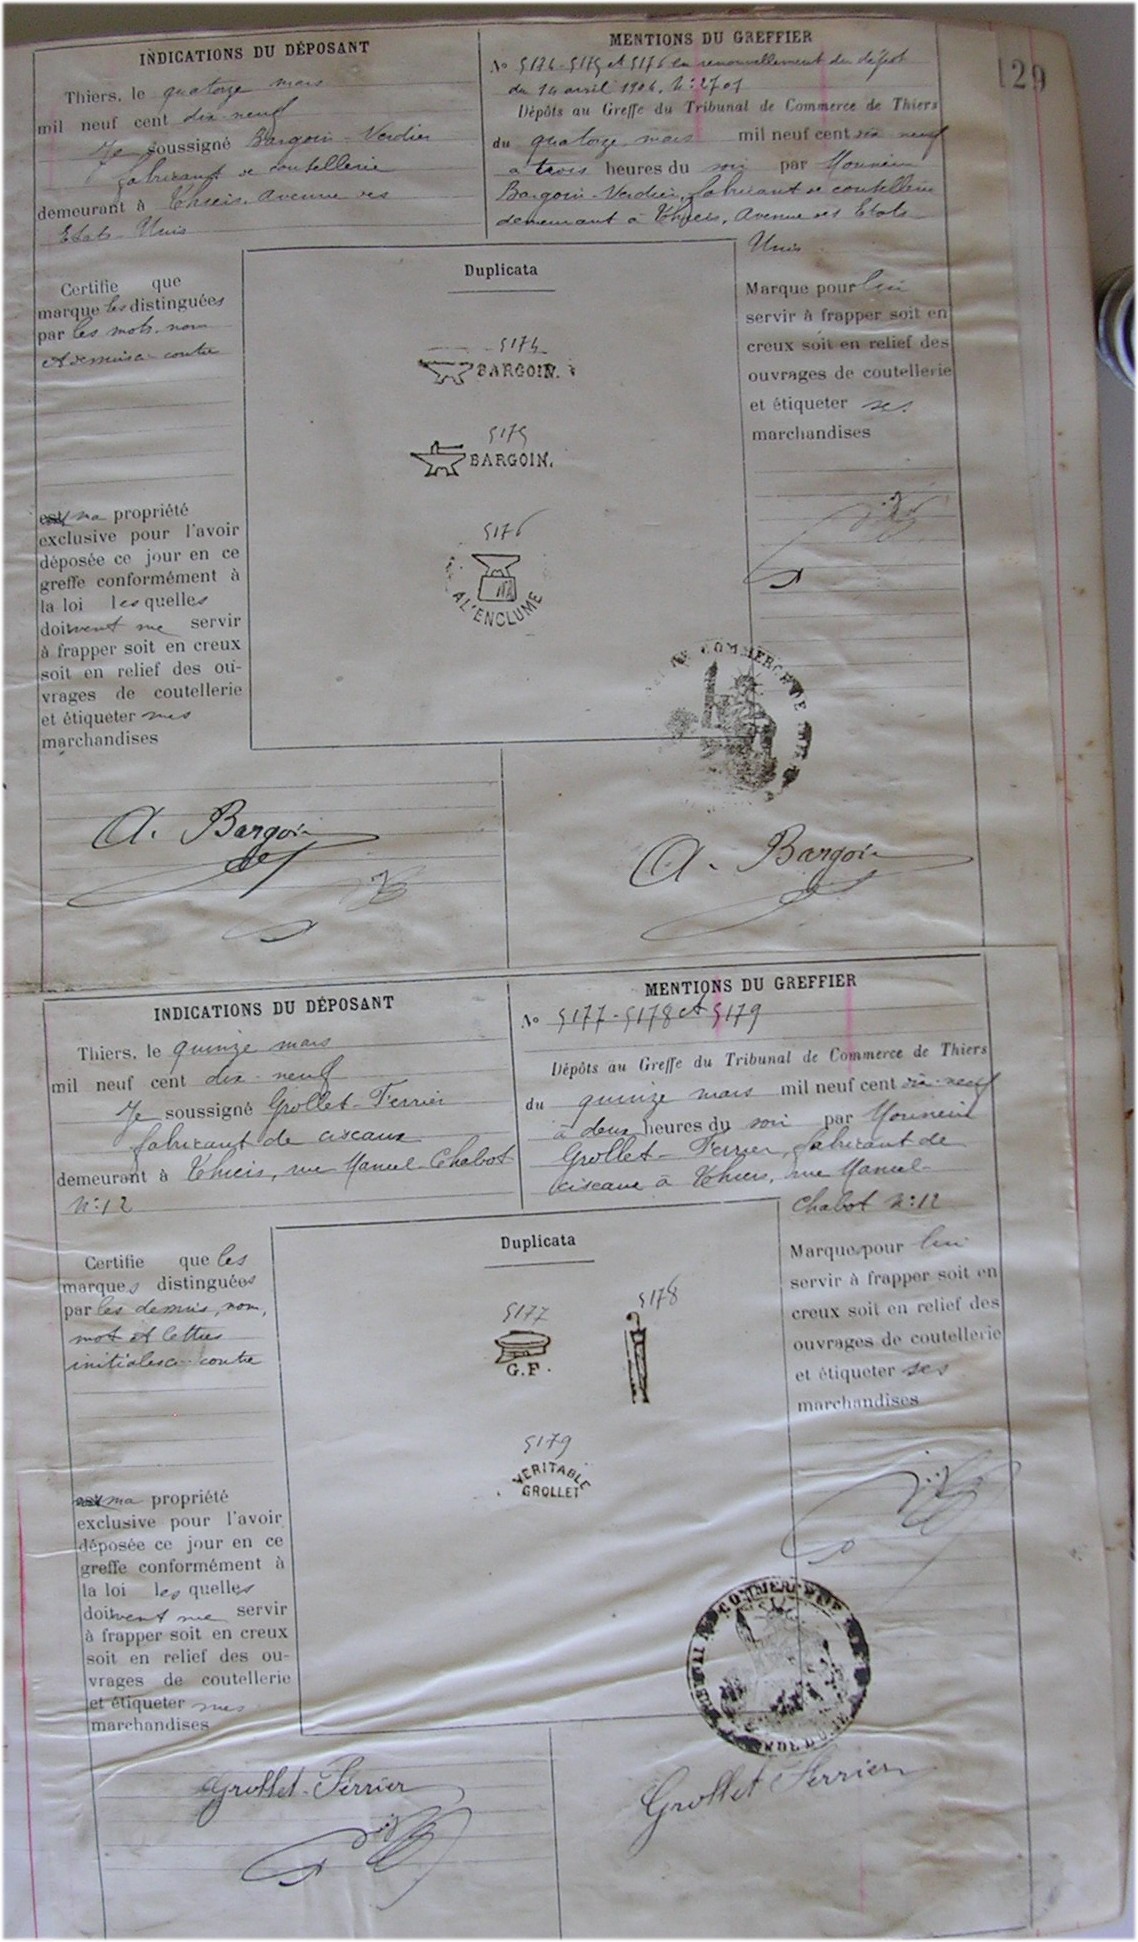 129
INDICATIONS DU DÉPOSANT
Thiers, le quatorze mars
mil neuf cent dix neuf
Je soussigné Bargoin-Verdier
fabricant de coutellerie
demeurant à Thiers, avenue des
Etats-Unis
MENTIONS DU GREFFIER
No 5174-5175 et 5176 en renouvellement du dépôt
du 14 avril 1904, N:2701
Dépôts au Greffe du Tribunal de Commerce de Thiers
du quatorze mars mil neuf cent dix neuf
à trois heures du soir par Monsieur
Bargoin-Verdier, fabricant de coutellerie
demeurant à Thiers, avenue des Etats
Unis
Certifie que
marque les distinguées
par les mots, nom
et dessins ci-contre
est ma propriété
exclusive pour l'avoir
déposée ce jour en ce
greffe conformément à
la loi lesquelles
doivent me servir
à frapper soit en creux
soit en relief des ou-
vrages de coutellerie
et étiqueter mes
marchandises
Duplicata
5174
BARGOIN.
5175
BARGOIN.
5176
A L'ENCLUME
Marque pour lui
servir à frapper soit en
creux soit en relief des
ouvrages de coutellerie
et étiqueter ses
marchandises
COMMERCE DE
A. Bargoin
A. Bargoin
INDICATIONS DU DÉPOSANT
Thiers, le quinze mars
mil neuf cent dix-neuf
Je soussigné Grollet-Ferrier
fabricant de ciseaux
demeurant à Thiers, rue Manuel Chabot
N:12
MENTIONS DU GREFFIER
No 5177-5178 et 5179
Dépôts au Greffe du Tribunal de Commerce de Thiers
du quinze mars mil neuf cent dix-neuf
à deux heures du soir par Monsieur
Grollet-Ferrier, fabricant de
ciseaux à Thiers, rue Manuel-
Chabot N:12
Certifie que les
marques distinguées
par les dessins, nom,
mot et lettres
initiales ci-contre
est ma propriété
exclusive pour l'avoir
déposée ce jour en ce
greffe conformément à
la loi lesquelles
doivent me servir
à frapper soit en creux
soit en relief des ou-
vrages de coutellerie
et étiqueter mes
marchandises
Duplicata
5177
G.F.
5178
5179
VERITABLE
GROLLET
Marque pour lui
servir à frapper soit en
creux soit en relief des
ouvrages de coutellerie
et étiqueter ses
marchandises
COMMERCE DE
Grollet-Ferrier
Grollet Ferrier